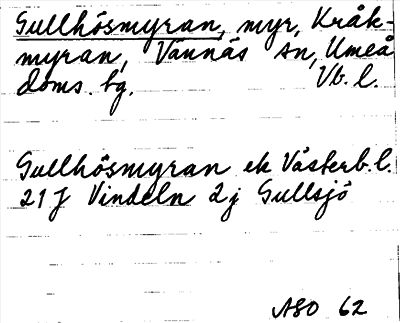 Gullhösmyran, myr, Kråk-
myran, Vännäs sn, Umeå
doms. bg. Vb. l.
Gullhösmyran ek Västerb.l.
21 J Vindeln 2 j Gullsjö
ASO 62